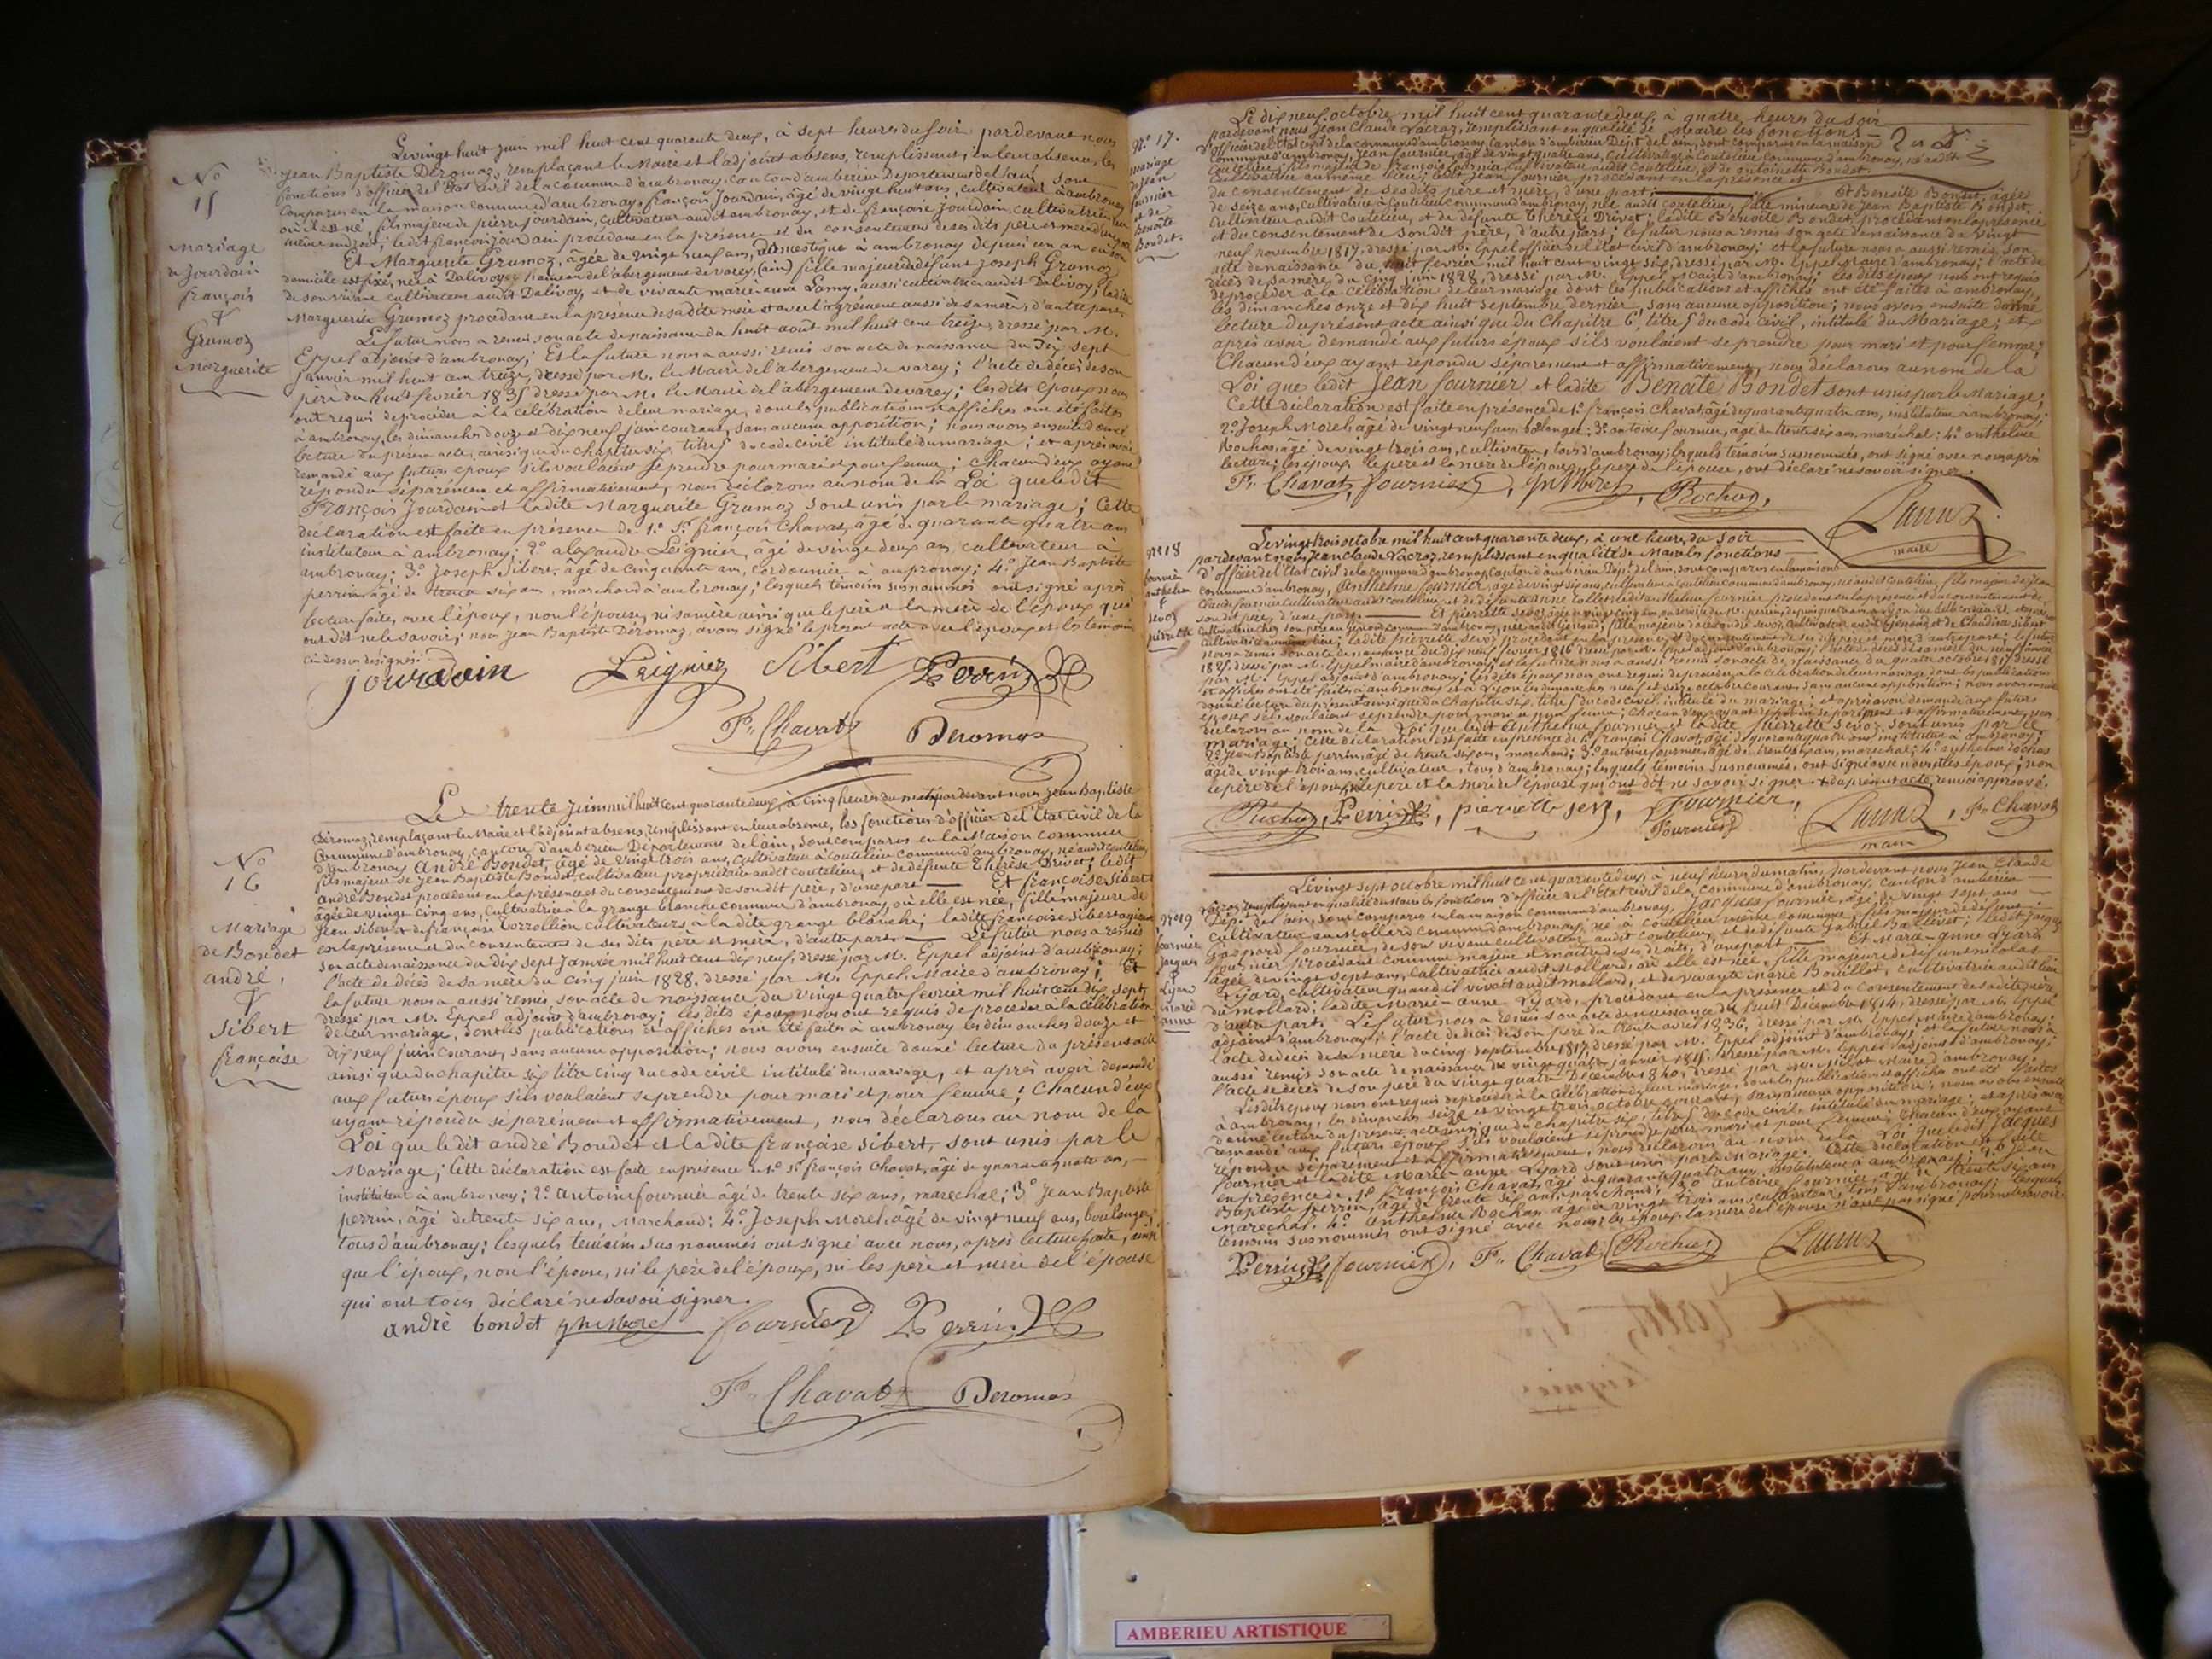 N° 15
Mariage
de Jourdain
françois
&
Grumoz
Marguerite
Le vingt huit juin mil huit cent quarante deux, à sept heures du soir pardevant nous
Jean Baptiste Déromaz, remplaçant le Maire et l'adjoint absens, remplissant, en leur absence, les
fonctions d'officier de l'état civil de la commune d'ambronay, canton d'amberieu Departement de l'ain, sont
comparus en la maison commune d'ambronay, françois Jourdain, âgé de vingt huit ans, cultivateur à ambronay
où il est né, fils majeur de pierre Jourdain, cultivateur audit ambronay, et de françoise Jourdain, cultivatrice au
même endroit; ledit françois Jourdain procédant en la présence et du consentement de ses dits père et mère d'une part
Et Marguerite Grumoz, âgée de vingt neuf ans, domestique à ambronay depuis un an où son
domicile est fixé, née à Dalivoy, hameau de l'abergement de varey, (ain) fille majeure de défunt Joseph Grumoz
de son vivant cultivateur audit Dalivoy, et de vivante marie anne Lamy, aussi cultivatrice audit Dalivoy; ladite
Marguerite Grumoz procédant en la présence de sa dite mère et avec l'agrément aussi de sa mère, d'autre part.
Le futur nous a remis son acte de naissance du huit aout mil huit cent treize, dressé par M.
Eppel adjoint d'ambronay; Et la future nous a aussi remis son acte de naissance du dix sept
janvier mil huit cent treize, dressé par M. le Maire de l'abergement de varey; l'acte de décès de son
père du huit fevrier 1835 dressé par M. le Maire de l'abergement de varey; les dits epoux nous
ont requis de procéder à la célébration de leur mariage, dont les publications et affiches ont été faites
à ambronay, les dimanches douze et dix neuf juin courant, sans aucune opposition; nous avons ensuite donné
lecture du présent acte, ainsi que du chapitre six, titre 5 du code civil intitulé du mariage; et après avoir
demandé aux futurs epoux s'ils voulaient se prendre pour mari et pour femme; chacun d'eux ayant
répondu séparément et affirmativement, nous déclarons au nom de la Loi que ledit
François Jourdain et ladite Marguerite Grumoz sont unis par le mariage; Cette
déclaration est faite en présence de 1.° Sr. françois Chavat, âgé de quarante quatre ans
instituteur à ambronay; 2.° alexandre Leignier, âgé de vingt deux ans cultivateur à
ambronay; 3.° Joseph Sibert, âgé de cinquante ans, cordonnier à ambronay; 4.° Jean Baptiste
perrin âgé de trente six ans, marchand à ambronay; lesquels témoins susnommés ont signé après
lecture faite, avec l'époux, non l'épouse, ni sa mère ainsi que le père et la mère de l'époux qui
ont dit ne le savoir; nous Jean Baptiste Déromaz, avons signé le présent acte avec l'époux et les témoins
ci-dessus désignés.
jourdain Leignier Sibert Perrin
Fs Chavat Deromas
N° 16
Mariage
de Bondet
andré,
&
Sibert
françoise
Le trente juin mil huit cent quarante deux, à cinq heures du matin pardevant nous Jean Baptiste
Déromaz, remplaçant le Maire et l'adjoint absens, remplissant en leur absence, les fonctions d'officier de l'Etat Civil de la
Commune d'ambronay, canton d'amberieu Département de l'ain, sont comparus en la Maison commune
d'Ambronay André Bondet, âgé de vingt trois ans, cultivateur à coutelieu commune d'ambronay, né audit coutelieu,
fils majeur de Jean Baptiste Bondet, cultivateur propriétaire audit coutelieu, et de défunte Thérèse Drivet; ledit
andré Bondet procédant en la présence et du consentement de son dit père, d'une part — Et françoise Sibert
âgée de vingt cinq ans, cultivatrice à la grange blanche commune d'ambronay, où elle est née, fille majeure de
Jean Sibert et de françoise Verrollion cultivateurs à la dite grange blanche; ladite françoise Sibert agissant
en la présence et du consentement de ses dits père et mère, d'autre part. — Le futur nous a remis
son acte de naissance du dix sept Janvier mil huit cent dix neuf, dressé par M. Eppel adjoint d'ambronay;
l'acte de décès de sa mère du cinq juin 1828. dressé par M. Eppel, Maire d'ambronay; Et
la future nous a aussi remis, son acte de naissance, du vingt quatre fevrier mil huit cent dix sept,
dressé par M. Eppel adjoint d'ambronay; les dits époux nous ont requis de procéder à la célébration
de leur mariage, dont les publications et affiches ont été faites à ambronay les dimanches douze et
dix neuf juin courant, sans aucune opposition; nous avons ensuite donné lecture du présent acte
ainsi que du chapitre six titre cinq du code civil intitulé du mariage, et après avoir demandé
aux futurs époux s'ils voulaient se prendre pour mari et pour femme; Chacun d'eux
ayant répondu séparément et affirmativement, nous déclarons au nom de la
Loi que ledit andré Bondet et la dite françoise Sibert, sont unis par le
Mariage; Cette déclaration est faite en présence de 1.° Sr françois Chavat, âgé de quarante quatre ans,
instituteur à ambronay; 2.° antoine fournier âgé de trente six ans, maréchal; 3.° Jean Baptiste
perrin, âgé de trente six ans, Marchand; 4.° Joseph Morel, âgé de vingt neuf ans, boulanger,
tous d'ambronay; lesquels témoins susnommés ont signé avec nous, après lecture faite, ainsi
que l'époux, non l'épouse, ni le père de l'époux, ni les père et mère de l'épouse
qui ont tous déclaré ne savoir signer.
andré bondet fournier Perrin
Fs Chavat Deromas
N° 17.
mariage
de Jean
fournier
et de
Benoite
Bondet.
Le dix neuf octobre mil huit cent quarante deux, à quatre heures du soir
pardevant nous Jean Claude Lacraz, remplissant en qualité de Maire les fonctions
d'officier de l'Etat civil de la commune d'ambronay, canton d'ambérieu Dépt. de l'ain, sont comparus en la maison
commune d'ambronay, Jean fournier, âgé de vingt quatre ans, cultivateur à Coutelieu commune d'ambronay, né audit
Coutelieu, fils majeur de françois fournier, cultivateur audit Coutelieu, et de antoinette Bondet,
cultivatrice au même lieu; ledit Jean fournier procédant en la présence et
du consentement de ses dits père et mère, d'une part; Et Benoite Bondet, âgée
de seize ans, cultivatrice à Coutelieu commune d'ambronay, née audit coutelieu, fille mineure de Jean Baptiste Bondet,
cultivateur audit Coutelieu, et de défunte Thérèse Drivet; ladite Benoite Bondet, procédant en la présence
et du consentement de son dit père, d'autre part; le futur nous a remis son acte de naissance du vingt
neuf novembre 1817, dressé par M. Eppel officier de l'état civil d'ambronay; et la future nous a aussi remis, son
acte de naissance du huit fevrier mil huit cent vingt six, dressé par M. Eppel Maire d'ambronay; l'acte de
décès de sa mère, du cinq juin 1828, dressé par M. Eppel Maire d'ambronay; les dits époux nous ont requis
de procéder à la célébration de leur mariage dont les publications et affiches ont été faites à ambronay
les dimanches onze et dix huit septembre dernier, sans aucune opposition; nous avons ensuite donné
lecture du présent acte ainsi que du Chapitre 6, titre 5 du code civil, intitulé du Mariage; et
après avoir demandé aux futurs époux s'ils voulaient se prendre pour mari et pour femme;
Chacun d'eux ayant répondu séparément et affirmativement, nous déclarons au nom de la
Loi que ledit Jean fournier et ladite Benoîte Bondet sont unis par le Mariage;
Cette déclaration est faite en présence de 1.° françois Chavat, âgé de quarante quatre ans, instituteur à ambronay;
2.° Joseph Morel, âgé de vingt neuf ans, boulanger; 3.° antoine fournier, âgé de trente six ans, maréchal; 4.° anthelme
Rochas, âgé de vingt trois ans, cultivateur, tous d'ambronay; lesquels témoins susnommés, ont signé avec nous après
lecture; les époux, le père et la mère de l'époux, le père de l'épouse, ont déclaré ne savoir signer.
Fs Chavat, fournier, Rochas,
maire
N° 18
fournier
anthelme
&
Sevoz
pierrette
Le vingt trois octobre mil huit cent quarante deux, à une heure du soir
pardevant nous, Jean Claude Lacroz, remplissant en qualité de Maire les fonctions
d'officier de l'Etat civil de la commune d'ambronay, Canton d'ambérieu, Dépt. de l'ain, sont comparus en la maison
commune d'ambronay, Anthelme fournier, âgé de vingt six ans, cultivateur à Coutelieu commune d'ambronay, né audit coutelieu, fils majeur de Jean
son dit père, d'une part. — Et pierrette Sevoz,
donné lecture du présent acte ainsi que du Chapitre six, titre 5 du code civil, intitulé du mariage; et après avoir demandé aux futurs
époux s'ils voulaient se prendre pour mari et pour femme; Chacun d'eux ayant répondu séparément et affirmativement, nous
déclarons au nom de la Loi que ledit Anthelme fournier, et ladite pierrette Sevoz, sont unis par le
mariage; Cette déclaration est faite en présence de 1.° françois Chavat, âgé de quarante quatre ans, instituteur à ambronay;
2.° Jean Baptiste perrin, âgé de trente six ans, marchand; 3.° antoine fournier, âgé de trente six ans, maréchal; 4.° anthelme Rochas
âgé de vingt trois ans, cultivateur, tous d'ambronay; lesquels témoins susnommés, ont signé avec nous, et les époux; non
le père de l'époux, ni le père et la mère de l'épouse qui ont dit ne savoir signer
Rochas, Perrin, pierrette sevoz, Fournier, Fs Chavat
Fournier
maire
N° 19
fournier
Jacques
&
Lyard
marie
anne
Le vingt sept octobre mil huit cent quarante deux, à neuf heures du matin, pardevant nous Jean Claude
Lacroz, remplissant en qualité de Maire les fonctions d'officier de l'Etat civil de la Commune d'ambronay, canton d'ambérieu
Dépt. de l'ain, sont comparus en la maison commune d'ambronay, Jacques fournier, âgé de vingt sept ans
cultivateur au Mollard commune d'ambronay, né à coutelieu même commune, fils majeur de défunt
fournier procédant comme majeur et maître de ses droits, d'une part — Et Marie-anne Lyard
âgée de vingt sept ans, cultivatrice audit Mollard, où elle est née, fille majeure de défunt nicolas
Lyard, cultivateur quand il vivait audit mollard, et de vivante marie Bouillet, cultivatrice audit lieu
du mollard; ladite Marie-anne Lyard, procédant en la présence et du consentement de sa dite mère
d'autre part. Le futur nous a remis son acte de naissance du huit Décembre 1814, dressé par M. Eppel
adjoint d'ambronay; l'acte de décès de son père du trente avril 1836, dressé par M. Eppel Maire d'ambronay;
l'acte de décès de sa mère du cinq septembre 1817 dressé par M. Eppel adjoint d'ambronay; et la future nous a
aussi remis son acte de naissance du vingt quatre janvier 1815 dressé par M. Eppel adjoint d'ambronay;
Les dits époux nous ont requis de procéder à la célébration de leur mariage, dont les publications et affiches ont été faites
à ambronay, les dimanches seize et vingt trois octobre courant, sans aucune opposition; nous avons ensuite
donné lecture du présent acte ainsi que du chapitre six, titre 5 du code civil, intitulé du mariage; et après avoir
demandé aux futurs époux s'ils voulaient se prendre pour mari et pour femme; chacun d'eux ayant
répondu séparément et affirmativement, nous déclarons au nom de la Loi que ledit Jacques
fournier et ladite Marie-anne Lyard sont unis par le mariage. Cette déclaration est faite
en présence de 1.° françois Chavat, âgé de quarante quatre ans, instituteur à ambronay; 2.° Jean
Baptiste perrin, âgé de trente six ans, marchand; 3.° antoine fournier, âgé de trente six ans
Maréchal. 4.° anthelme Rochas âgé de vingt trois ans, cultivateur, tous d'ambronay; lesquels
témoins susnommés ont signé avec nous;
Perrin, fournier, Fs Chavat, Rochas
AMBERIEU ARTISTIQUE